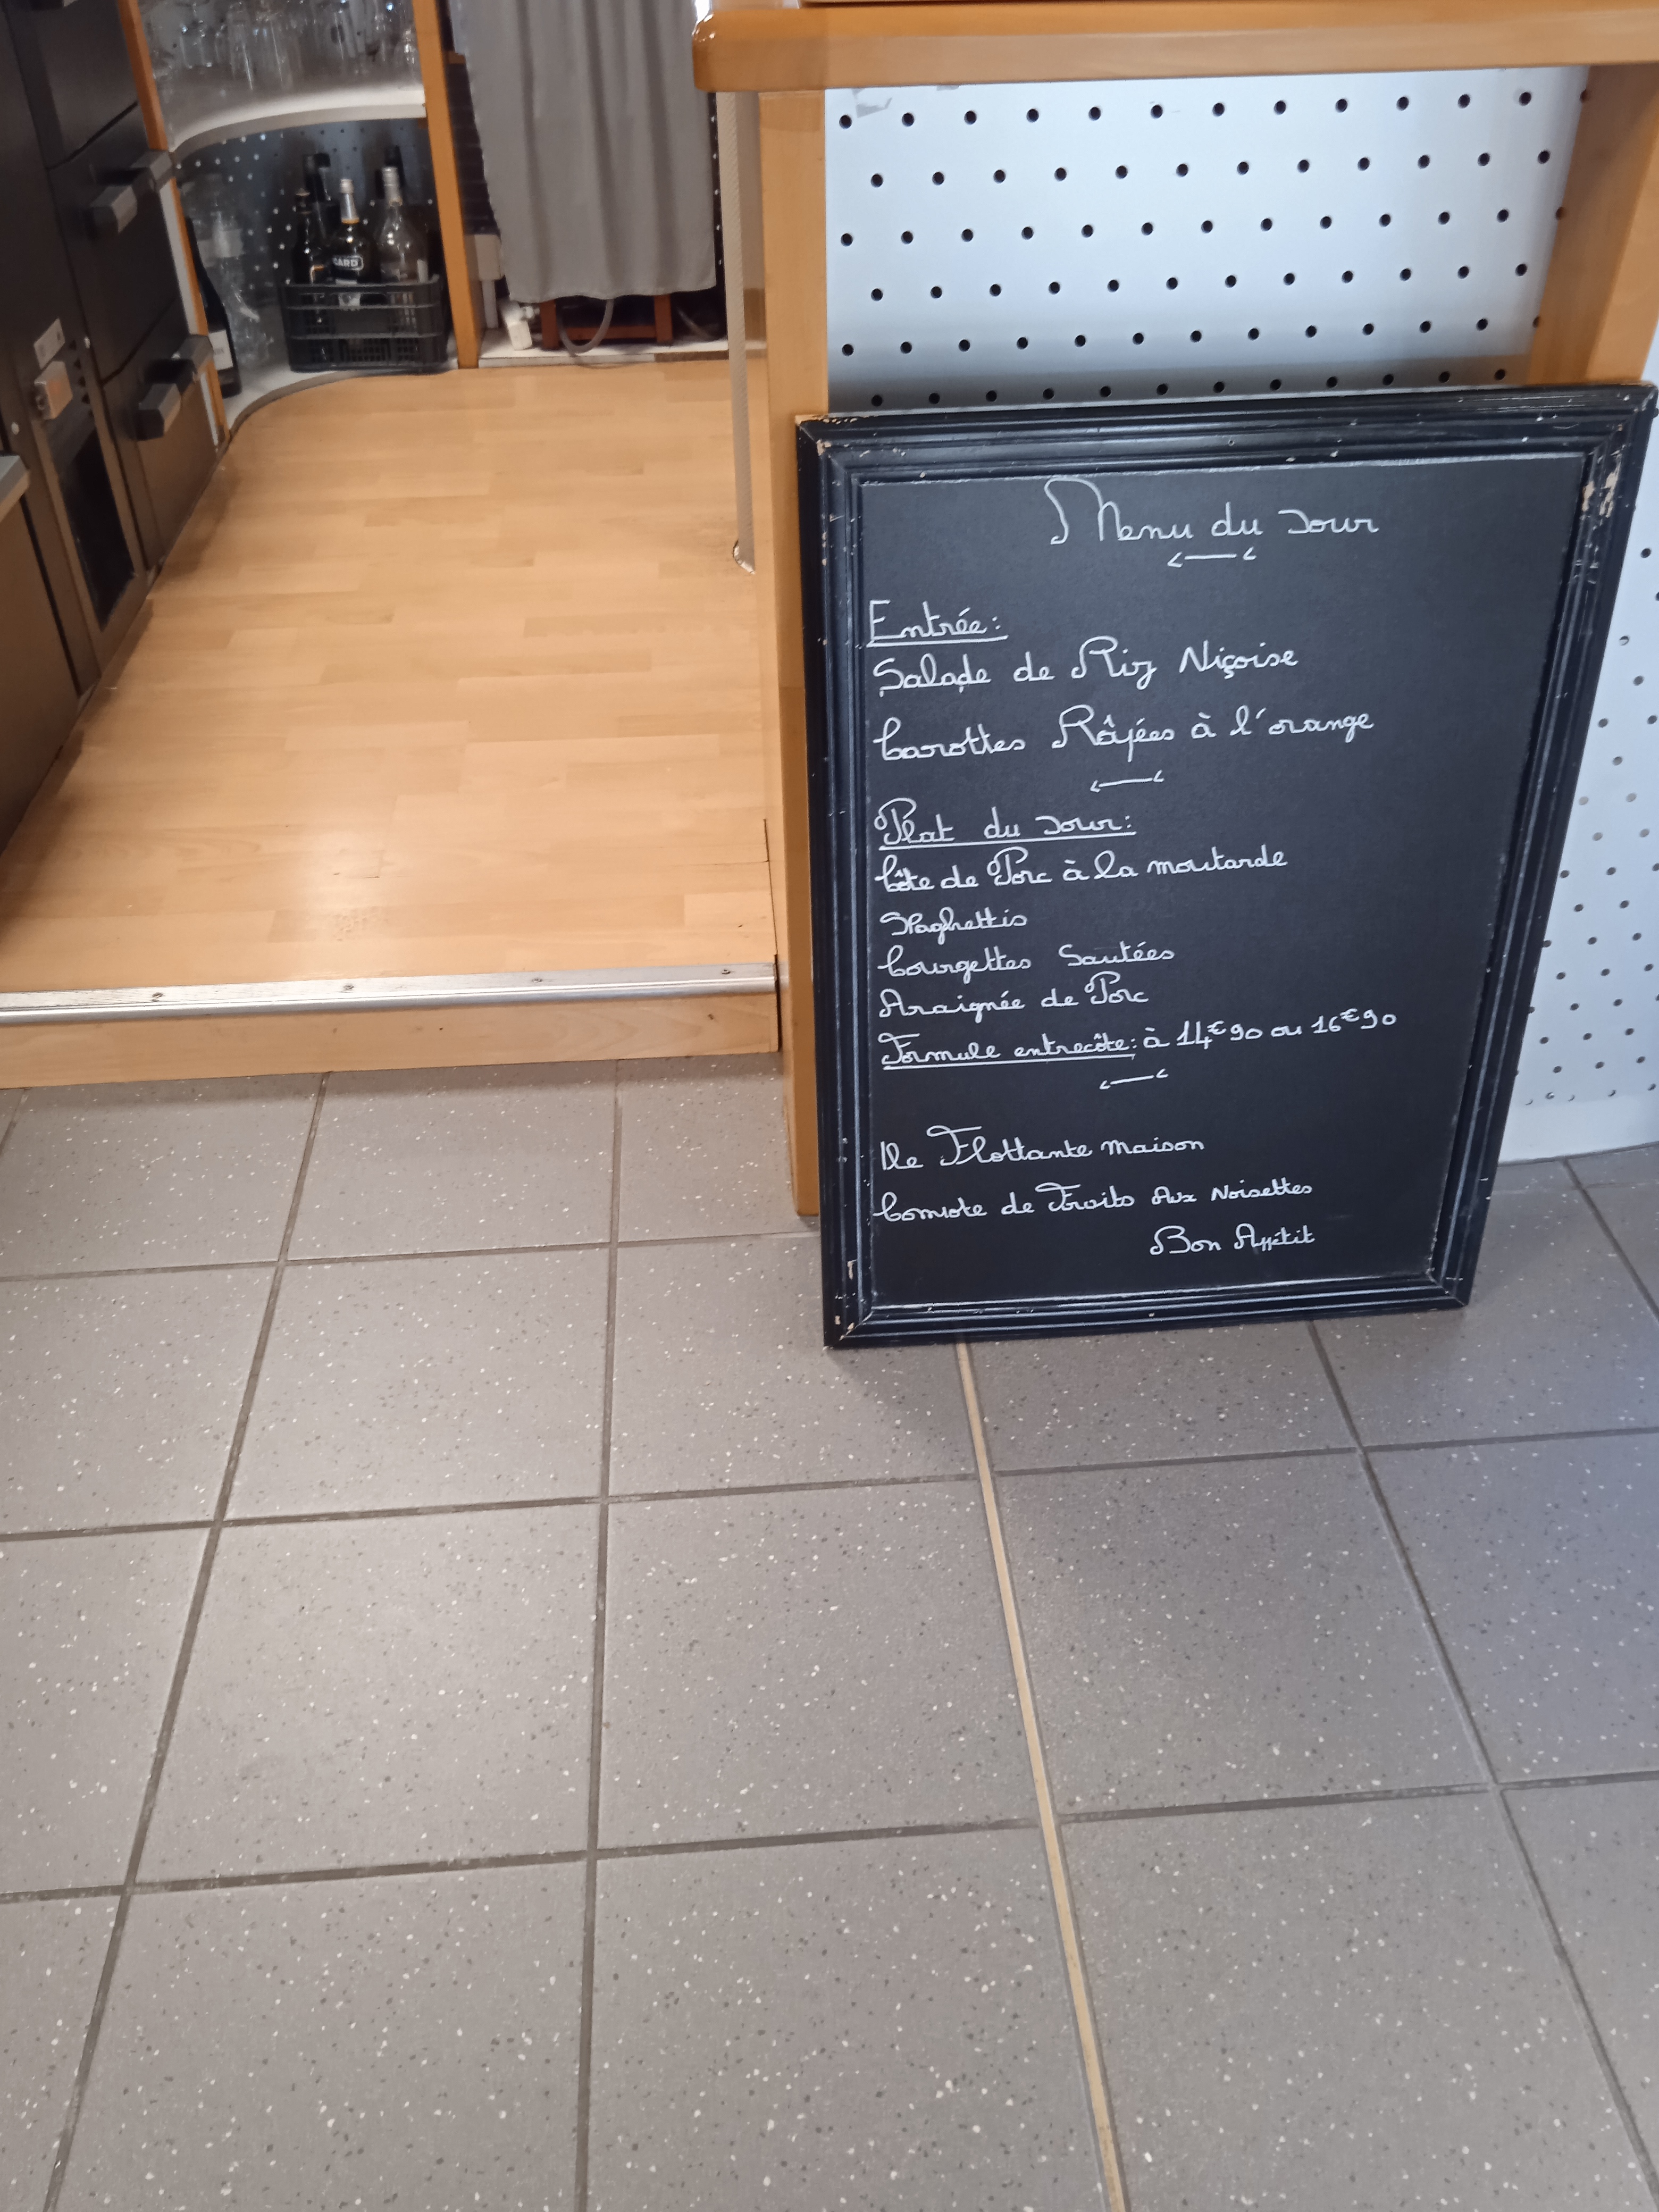 Menu du Jour
Entrée:
Salade de Riz Niçoise
Carottes Râpées à l'orange
Plat du Jour:
Côte de Porc à la moutarde
Spaghettis
Courgettes Sautées
Araignée de Porc
Formule entrecôte: à 14€90 ou 16€90
Ile Flottante maison
Compote de Fruits Aux Noisettes
Bon Appétit
CARD